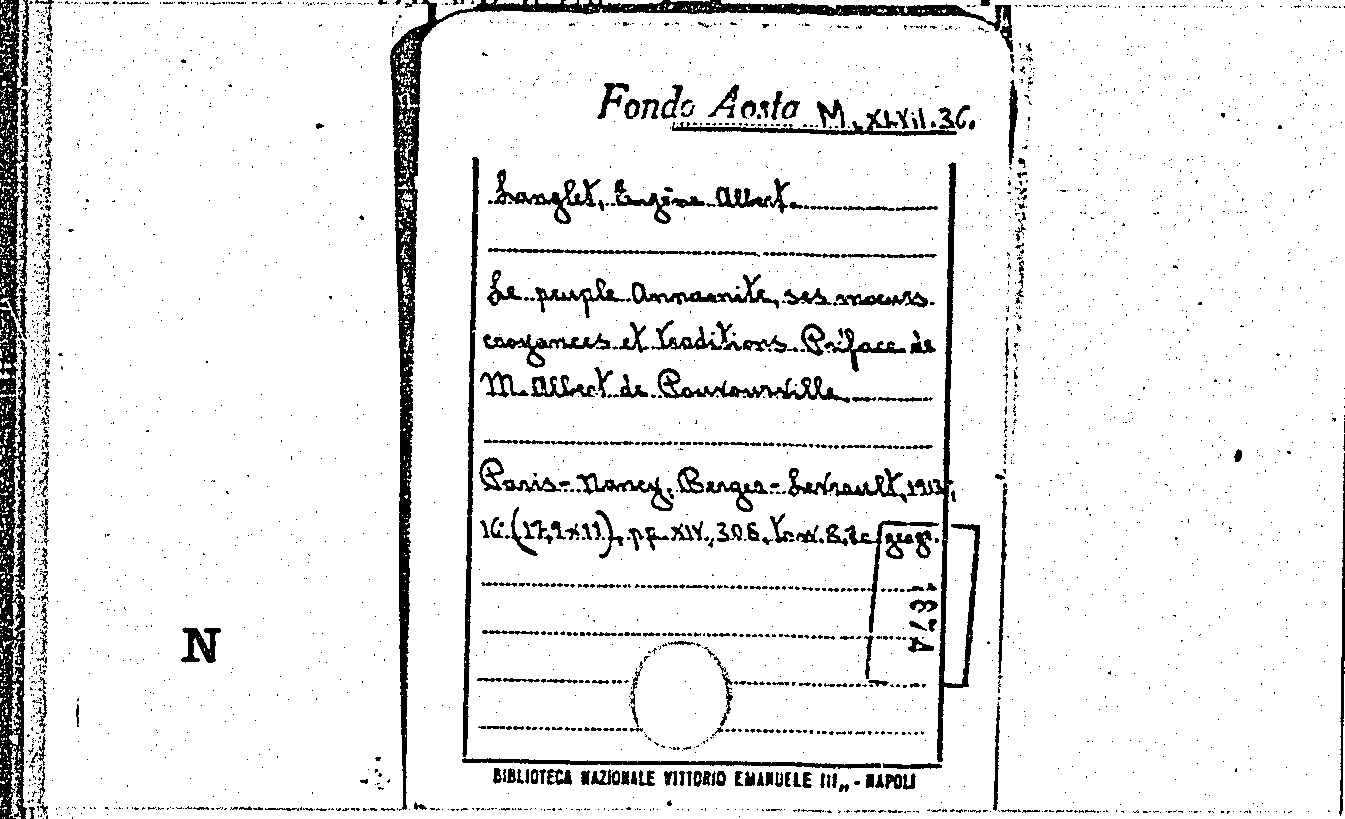 Fondo Aosta M. XLVII.36.
Langlet, Eugène Albert.
Le peuple Annamite, ses moeurs
croyances et traditions. Préface de
M. Albert de Pouvourville.
Paris-Nancy. Berger-Levrault, 1913,
16. (17,9x11), pp. XIV, 306, tav. 8, 2c geogr.
1874
N
BIBLIOTECA NAZIONALE VITTORIO EMANUELE III,, - NAPOLI